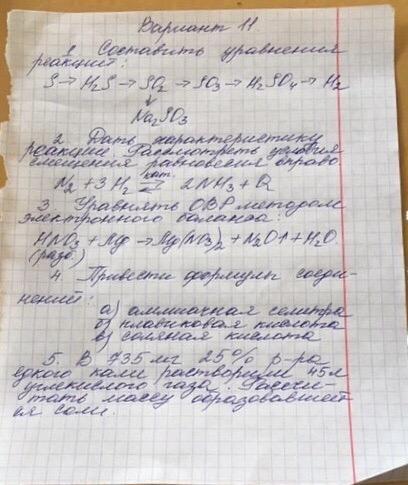 Вариант 11.
1. Составить уравнения
реакций:
S → H₂S → SO₂ → SO₃ → H₂SO₄ → H₂
↓
Na₂SO₃
2. Дать характеристику
реакции. Рассмотреть условия
смещения равновесия вправо
N₂ + 3H₂ кат. ⇄ 2NH₃ + Q
3. Уравнять ОВР методом
электронного баланса:
HNO₃ + Mg → Mg(NO₃)₂ + N₂O↑ + H₂O
(разб.)
4. Привести формулы соеди-
нений:
а) аммиачная селитра
б) плавиковая кислота
в) соляная кислота
5. В 735 мг 25% р-ра
едкого кали растворили 45л
углекислого газа. Рассчи-
тать массу образовавшей
ся соли.